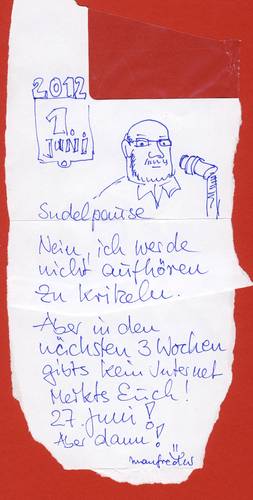 2012
1.
JUNI
Sudelpause
Nein, ich werde
nicht aufhören
zu kritzeln.
Aber in den
nächsten 3 Wochen
gibts kein Internet
Merkts Euch!
27. Juni!
Aber dann!